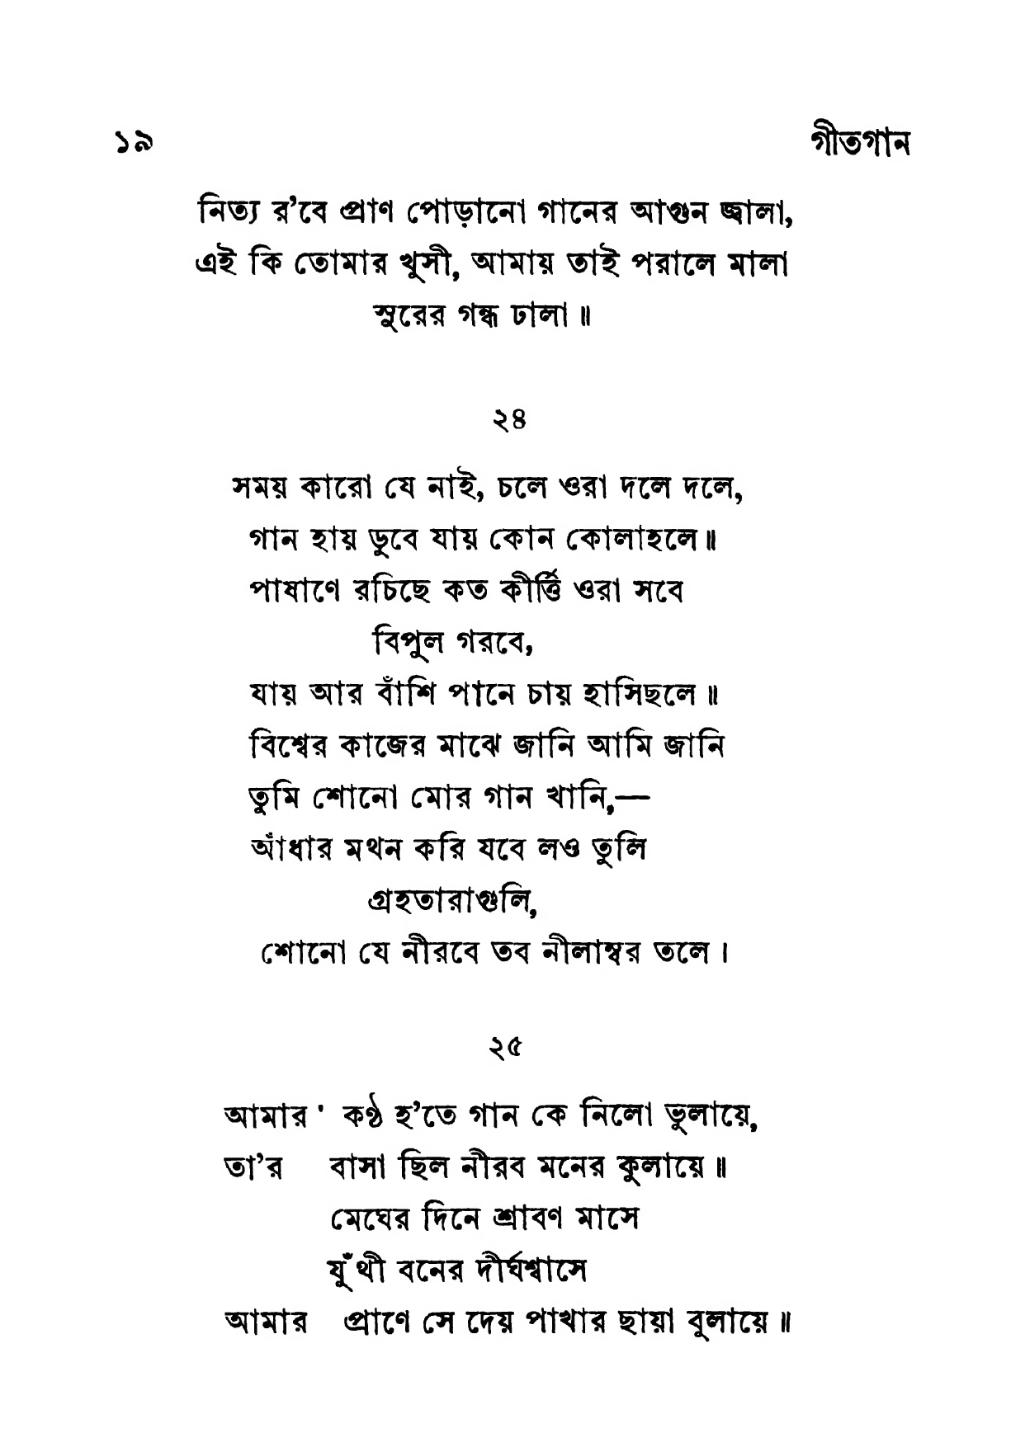 ১৯ গীতগান
নিত্য র'বে প্রাণ পোড়ানো গানের আগুন জ্বালা,
এই কি তোমার খুসী, আমায় তাই পরালে মালা
সুরের গন্ধ ঢালা॥
২৪
সময় কারো যে নাই, চলে ওরা দলে দলে,
গান হায় ডুবে যায় কোন কোলাহলে॥
পাষাণে রচিছে কত কীর্ত্তি ওরা সবে
বিপুল গরবে,
যায় আর বাঁশি পানে চায় হাসিছলে॥
বিশ্বের কাজের মাঝে জানি আমি জানি
তুমি শোনো মোর গান খানি,—
আঁধার মথন করি যবে লও তুলি
গ্রহতারাগুলি,
শোনো যে নীরবে তব নীলাম্বর তলে।
২৫
আমার ' কণ্ঠ হ'তে গান কে নিলো ভুলায়ে,
তা'র বাসা ছিল নীরব মনের কুলায়ে॥
মেঘের দিনে শ্রাবণ মাসে
যুঁথী বনের দীর্ঘশ্বাসে
আমার প্রাণে সে দেয় পাখার ছায়া বুলায়ে॥